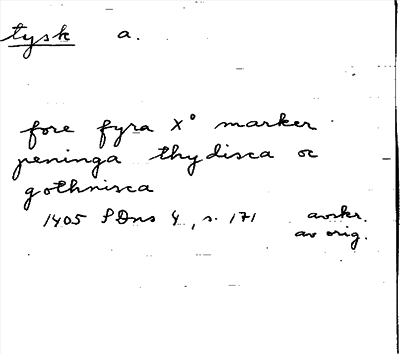 tysk a.
fore fyra x° marker
peninga thydisca oc
gothnisca
1405 SDns 4, s. 171 avskr.
av orig.